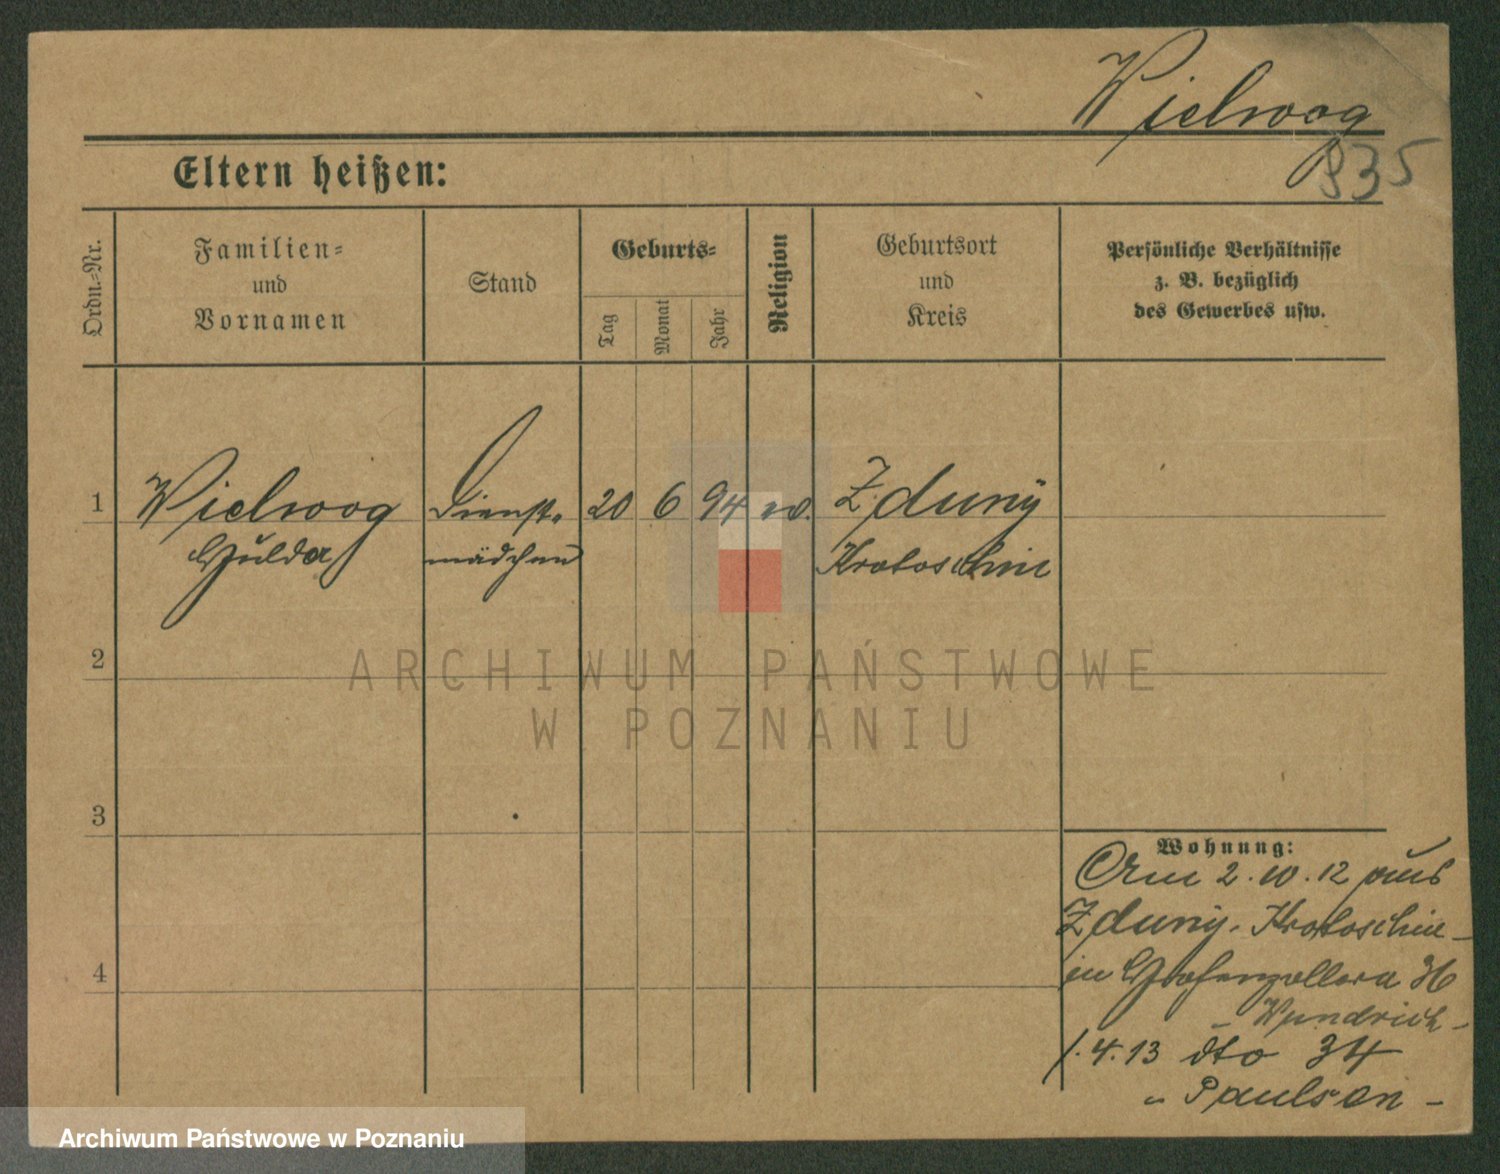 Wielwoog
835
Eltern heißen:
Ordn.-Nr.
Familien-
und
Vornamen
Stand
Geburts-
Tag
Monat
Jahr
Religion
Geburtsort
und
Kreis
Persönliche Verhältnisse
z. B. bezüglich
des Gewerbes usw.
1
Wielwoog
Hulda
Dienst-
mädchen
20 6 94 ev.
Zduny
Krotoschin
2
3
4
Wohnung:
Am 2.10.12 aus
Zduny-Krotoschin-
in Hohenzollern 36
Wundrich-
1.4.13 dto 34
" Paulson -
ARCHIWUM PAŃSTWOWE
W POZNANIU
Archiwum Państwowe w Poznaniu